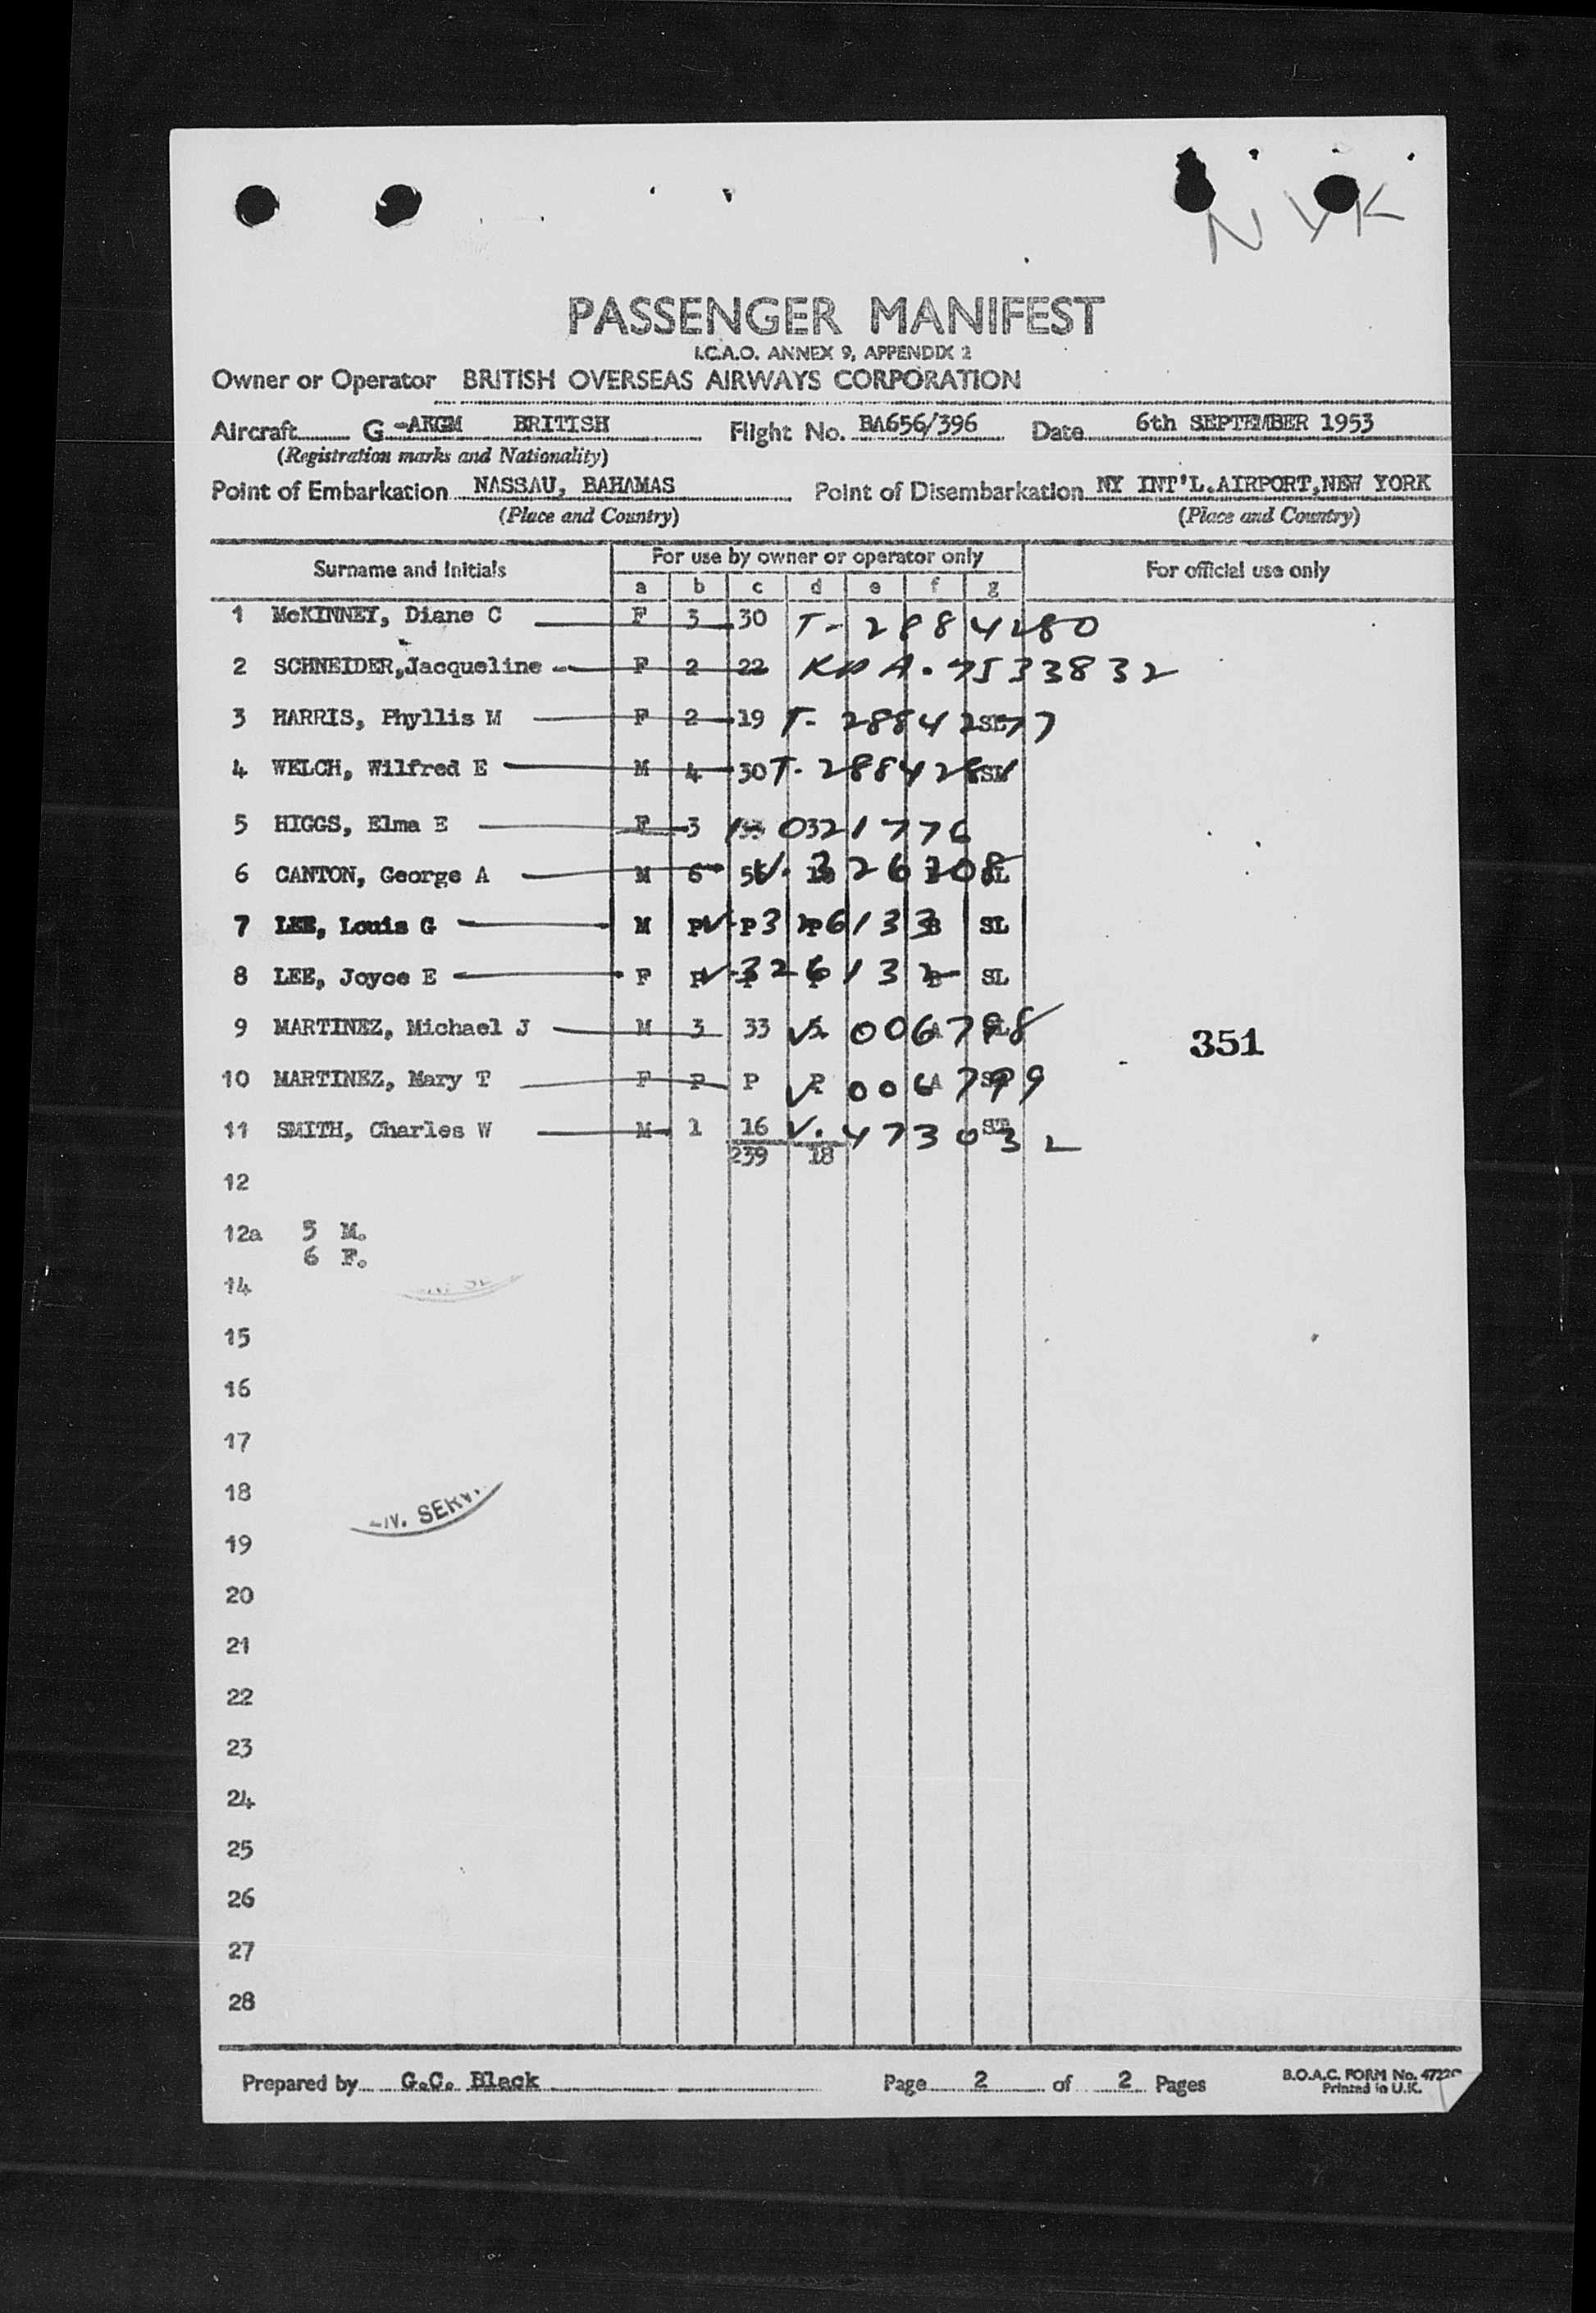 N Y K
PASSENGER MANIFEST
I.C.A.O. ANNEX 9, APPENDIX 2
Owner or Operator BRITISH OVERSEAS AIRWAYS CORPORATION
Aircraft G -AKGM BRITISH Flight No. BA656/396 Date 6th SEPTEMBER 1953
(Registration marks and Nationality)
Point of Embarkation NASSAU, BAHAMAS Point of Disembarkation NY INT'L.AIRPORT,NEW YORK
(Place and Country) (Place and Country)
Surname and Initials For use by owner or operator only For official use only
a b c d e f g
1 McKINNEY, Diane C F 3 30 T- 2884280
2 SCHNEIDER,Jacqueline F 2 22 A. 7533832
3 HARRIS, Phyllis M F 2 19 T- 2884277
4 WELCH, Wilfred E M 4 30 T- 288428
5 HIGGS, Elma E F 3 0321776
6 CANTON, George A M 6 V. 326308
7 LEE, Louis G M P V- P 326133 B SL
8 LEE, Joyce E F P V 326132 B SL
9 MARTINEZ, Michael J M 3 33 V. 006798
10 MARTINEZ, Mary T F P P P V 006799
11 SMITH, Charles W M 1 16 V. 473032
239 18
12
12a 5 M.
6 F.
14
15
16
17
18
19
20
21
22
23
24
25
26
27
28
351
SERV
Prepared by G.C. Black Page 2 of 2 Pages B.O.A.C. FORM No.
Printed in U.K.